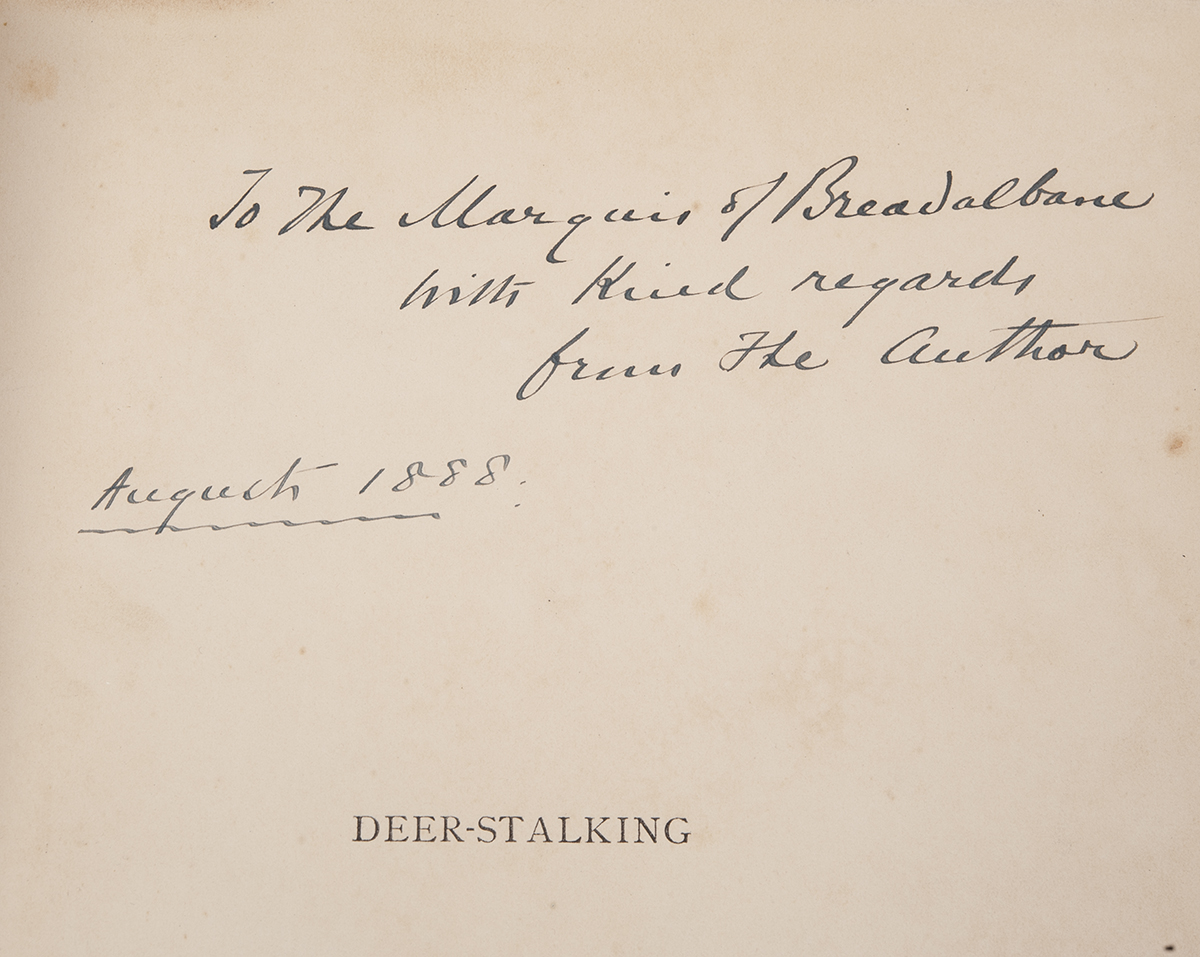 To The Marquis of Breadalbane
with Kind regards
from The Author
August 1888.
DEER-STALKING